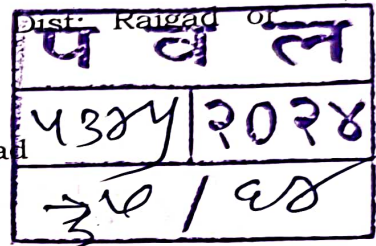 Dist: Raigad of
प व ल
५३४५ २०२४
ad
/ ६४